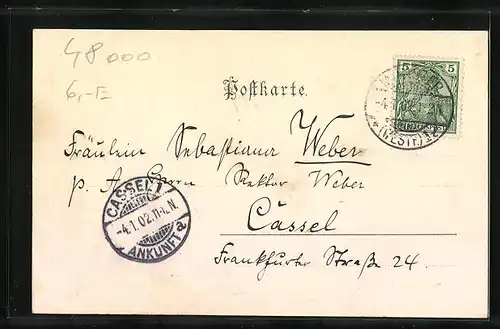 48000
6,-E
Postkarte.
5 5
Fräulein Sebastiana Weber
p. A. Herrn Rektor Weber
Cassel
Frankfurter Straße 24
CASSEL 1
-4.1.02.11-12.N.
ANKUNFT a
(WESTF.)